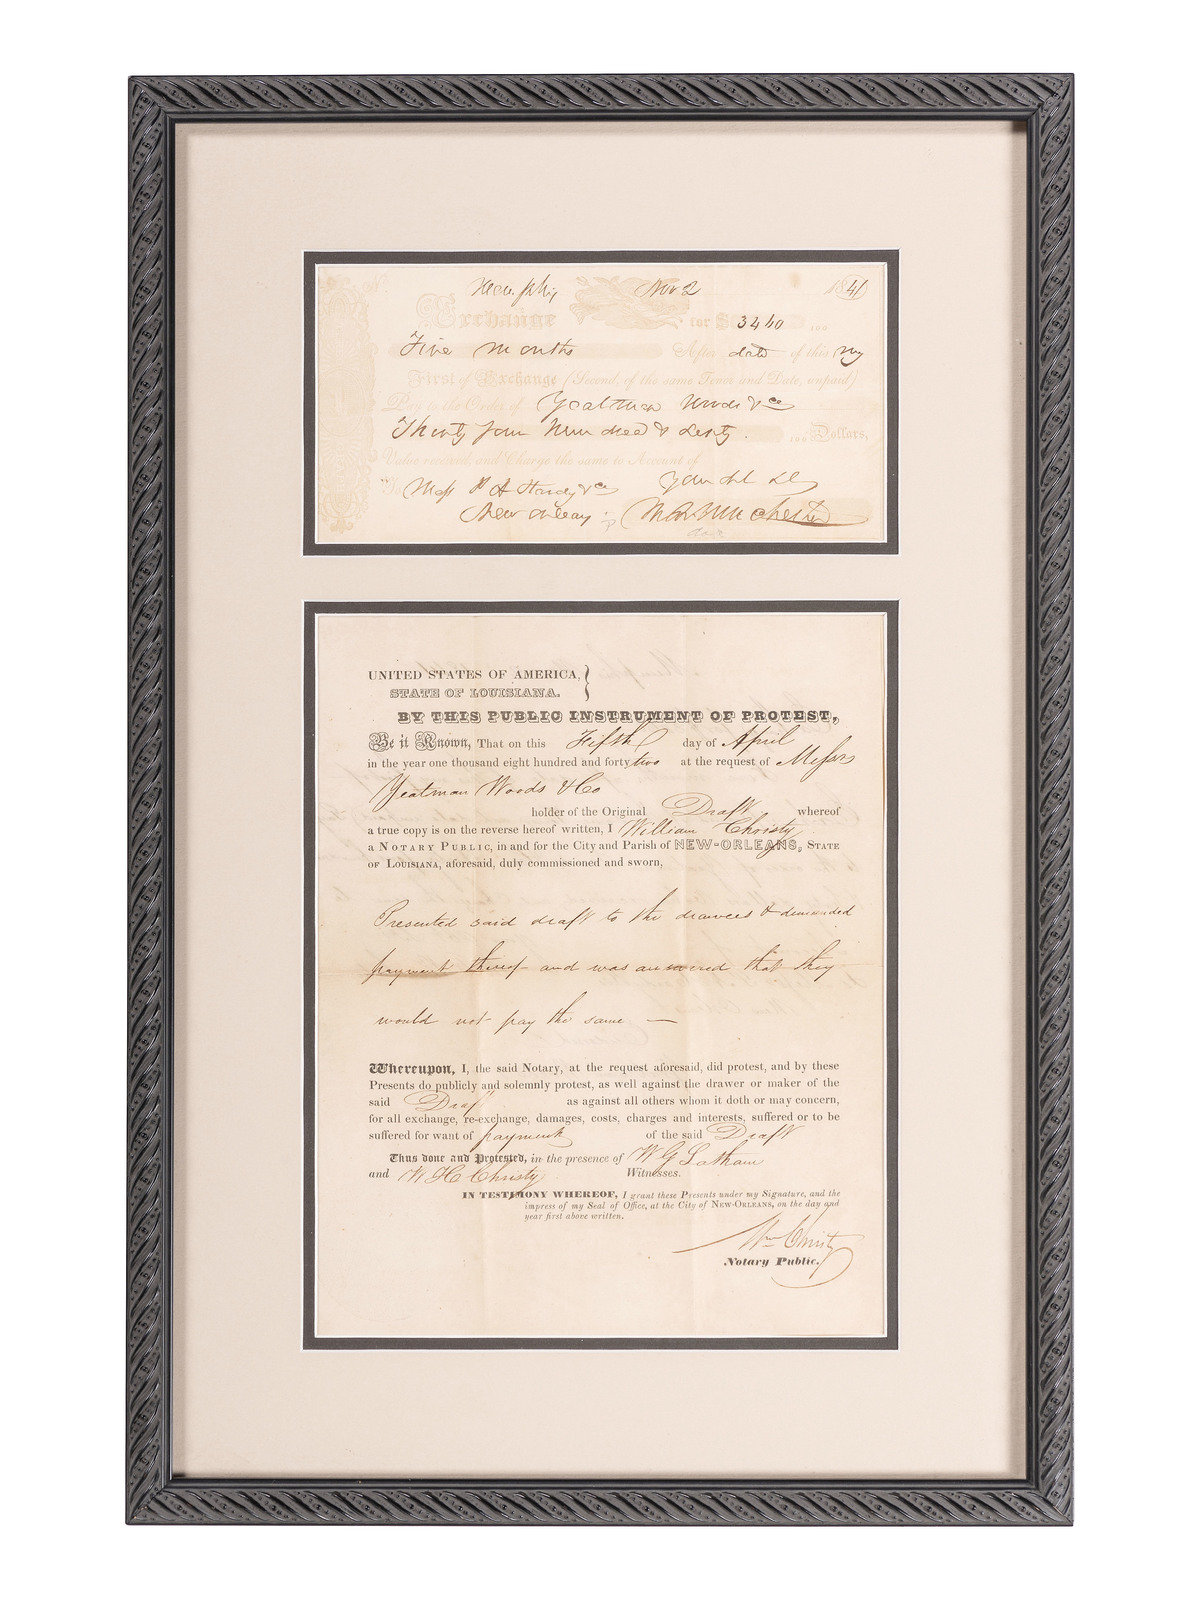 Memphis Nov 2 1841
Exchange for $ 3460 100
Five Months After date of this my
First of Exchange (Second, of the same Tenor and Date, unpaid)
Pay to the Order of Yeatman Woods & Co
Thirty four Hundred & sixty 100 Dollars,
Value received, and Charge the same to Account of
To Mess Hardy & Co
New Orleans
UNITED STATES OF AMERICA,
STATE OF LOUISIANA.
BY THIS PUBLIC INSTRUMENT OF PROTEST,
Be it Known, That on this Fifth day of April
in the year one thousand eight hundred and forty two at the request of Messrs
Yeatman Woods & Co
holder of the Original Draft whereof
a true copy is on the reverse hereof written, I William Christy
a NOTARY PUBLIC, in and for the City and Parish of NEW-ORLEANS, STATE
OF LOUISIANA, aforesaid, duly commissioned and sworn,
Presented said draft to the drawees & demanded
payment thereof and was answered that they
would not pay the same —
Whereupon, I, the said Notary, at the request aforesaid, did protest, and by these
Presents do publicly and solemnly protest, as well against the drawer or maker of the
said Draft as against all others whom it doth or may concern,
for all exchange, re-exchange, damages, costs, charges and interests, suffered or to be
suffered for want of payment of the said Draft
Thus done and Protested, in the presence of W G Latham
and W H C Christy Witnesses.
IN TESTIMONY WHEREOF, I grant these Presents under my Signature, and the
impress of my Seal of Office, at the City of NEW-ORLEANS, on the day and
year first above written.
Wm Christy
Notary Public.